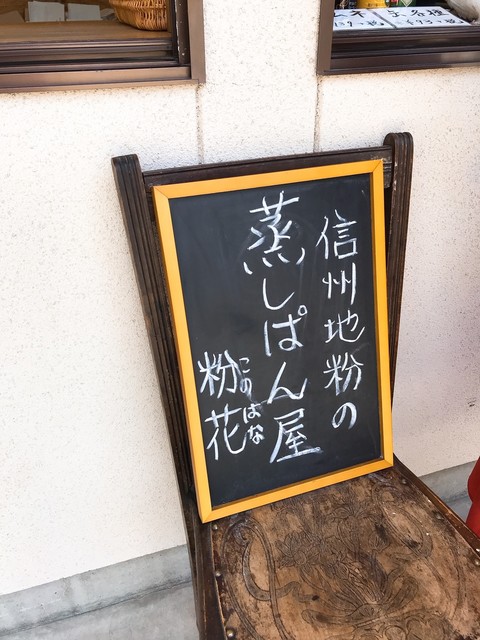 信州地粉の
蒸しぱん屋
このはな
粉花